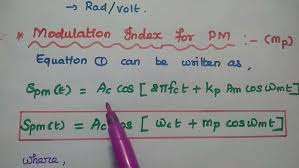 → Rad/volt.
* Modulation Index for PM :- (mp)
Equation ① can be written as,
Spm(t) = Ac cos [ 2πfct + kp Am cos ωmt ]
Spm(t) = Ac cos [ ωct + mp cos ωmt ]
where,